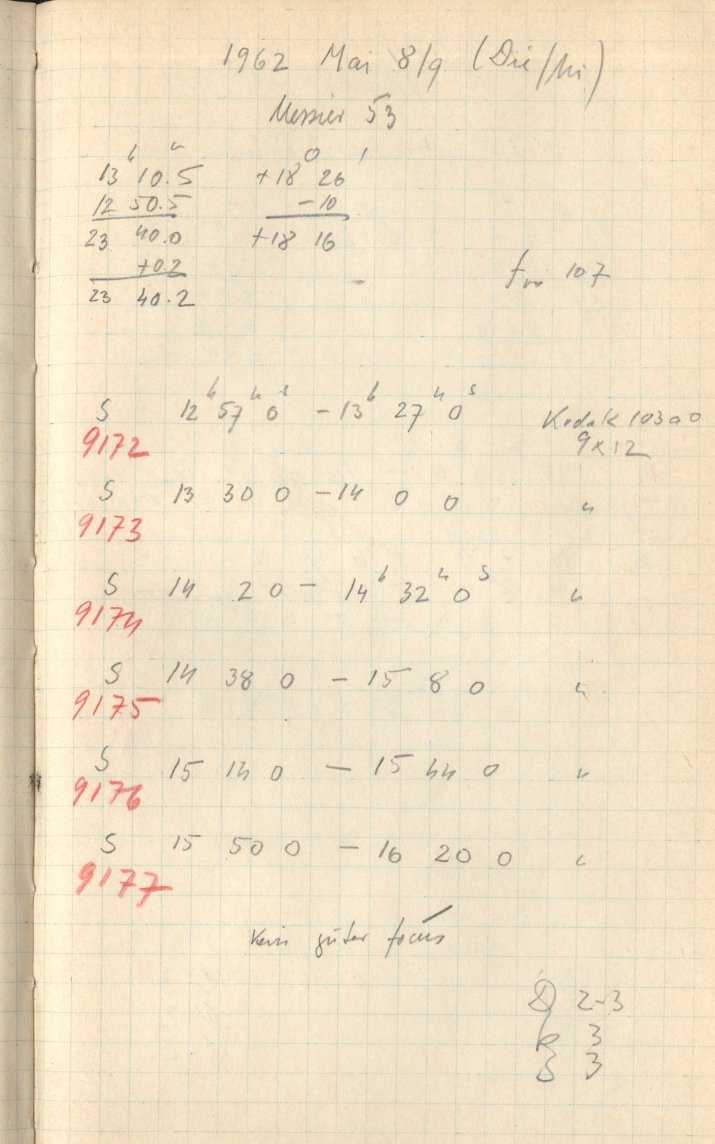 1962 Mai 8/9 (Die/Mi)
Messier 53
h m o '
13 10.5 +18 26
12 50.5 -10
23 40.0 +18 16
+0.2
23 40.2
107
S 12h 57m 0s - 13h 27m 0s Kodak 103a0
9172 9x12
S 13 30 0 - 14 0 0 "
9173
S 14 2 0 - 14h 32m 0s "
9174
S 14 38 0 - 15 8 0 "
9175
S 15 14 0 - 15 44 0 "
9176
S 15 50 0 - 16 20 0 "
9177
Kein guter focus
D 2-3
R 3
S 3